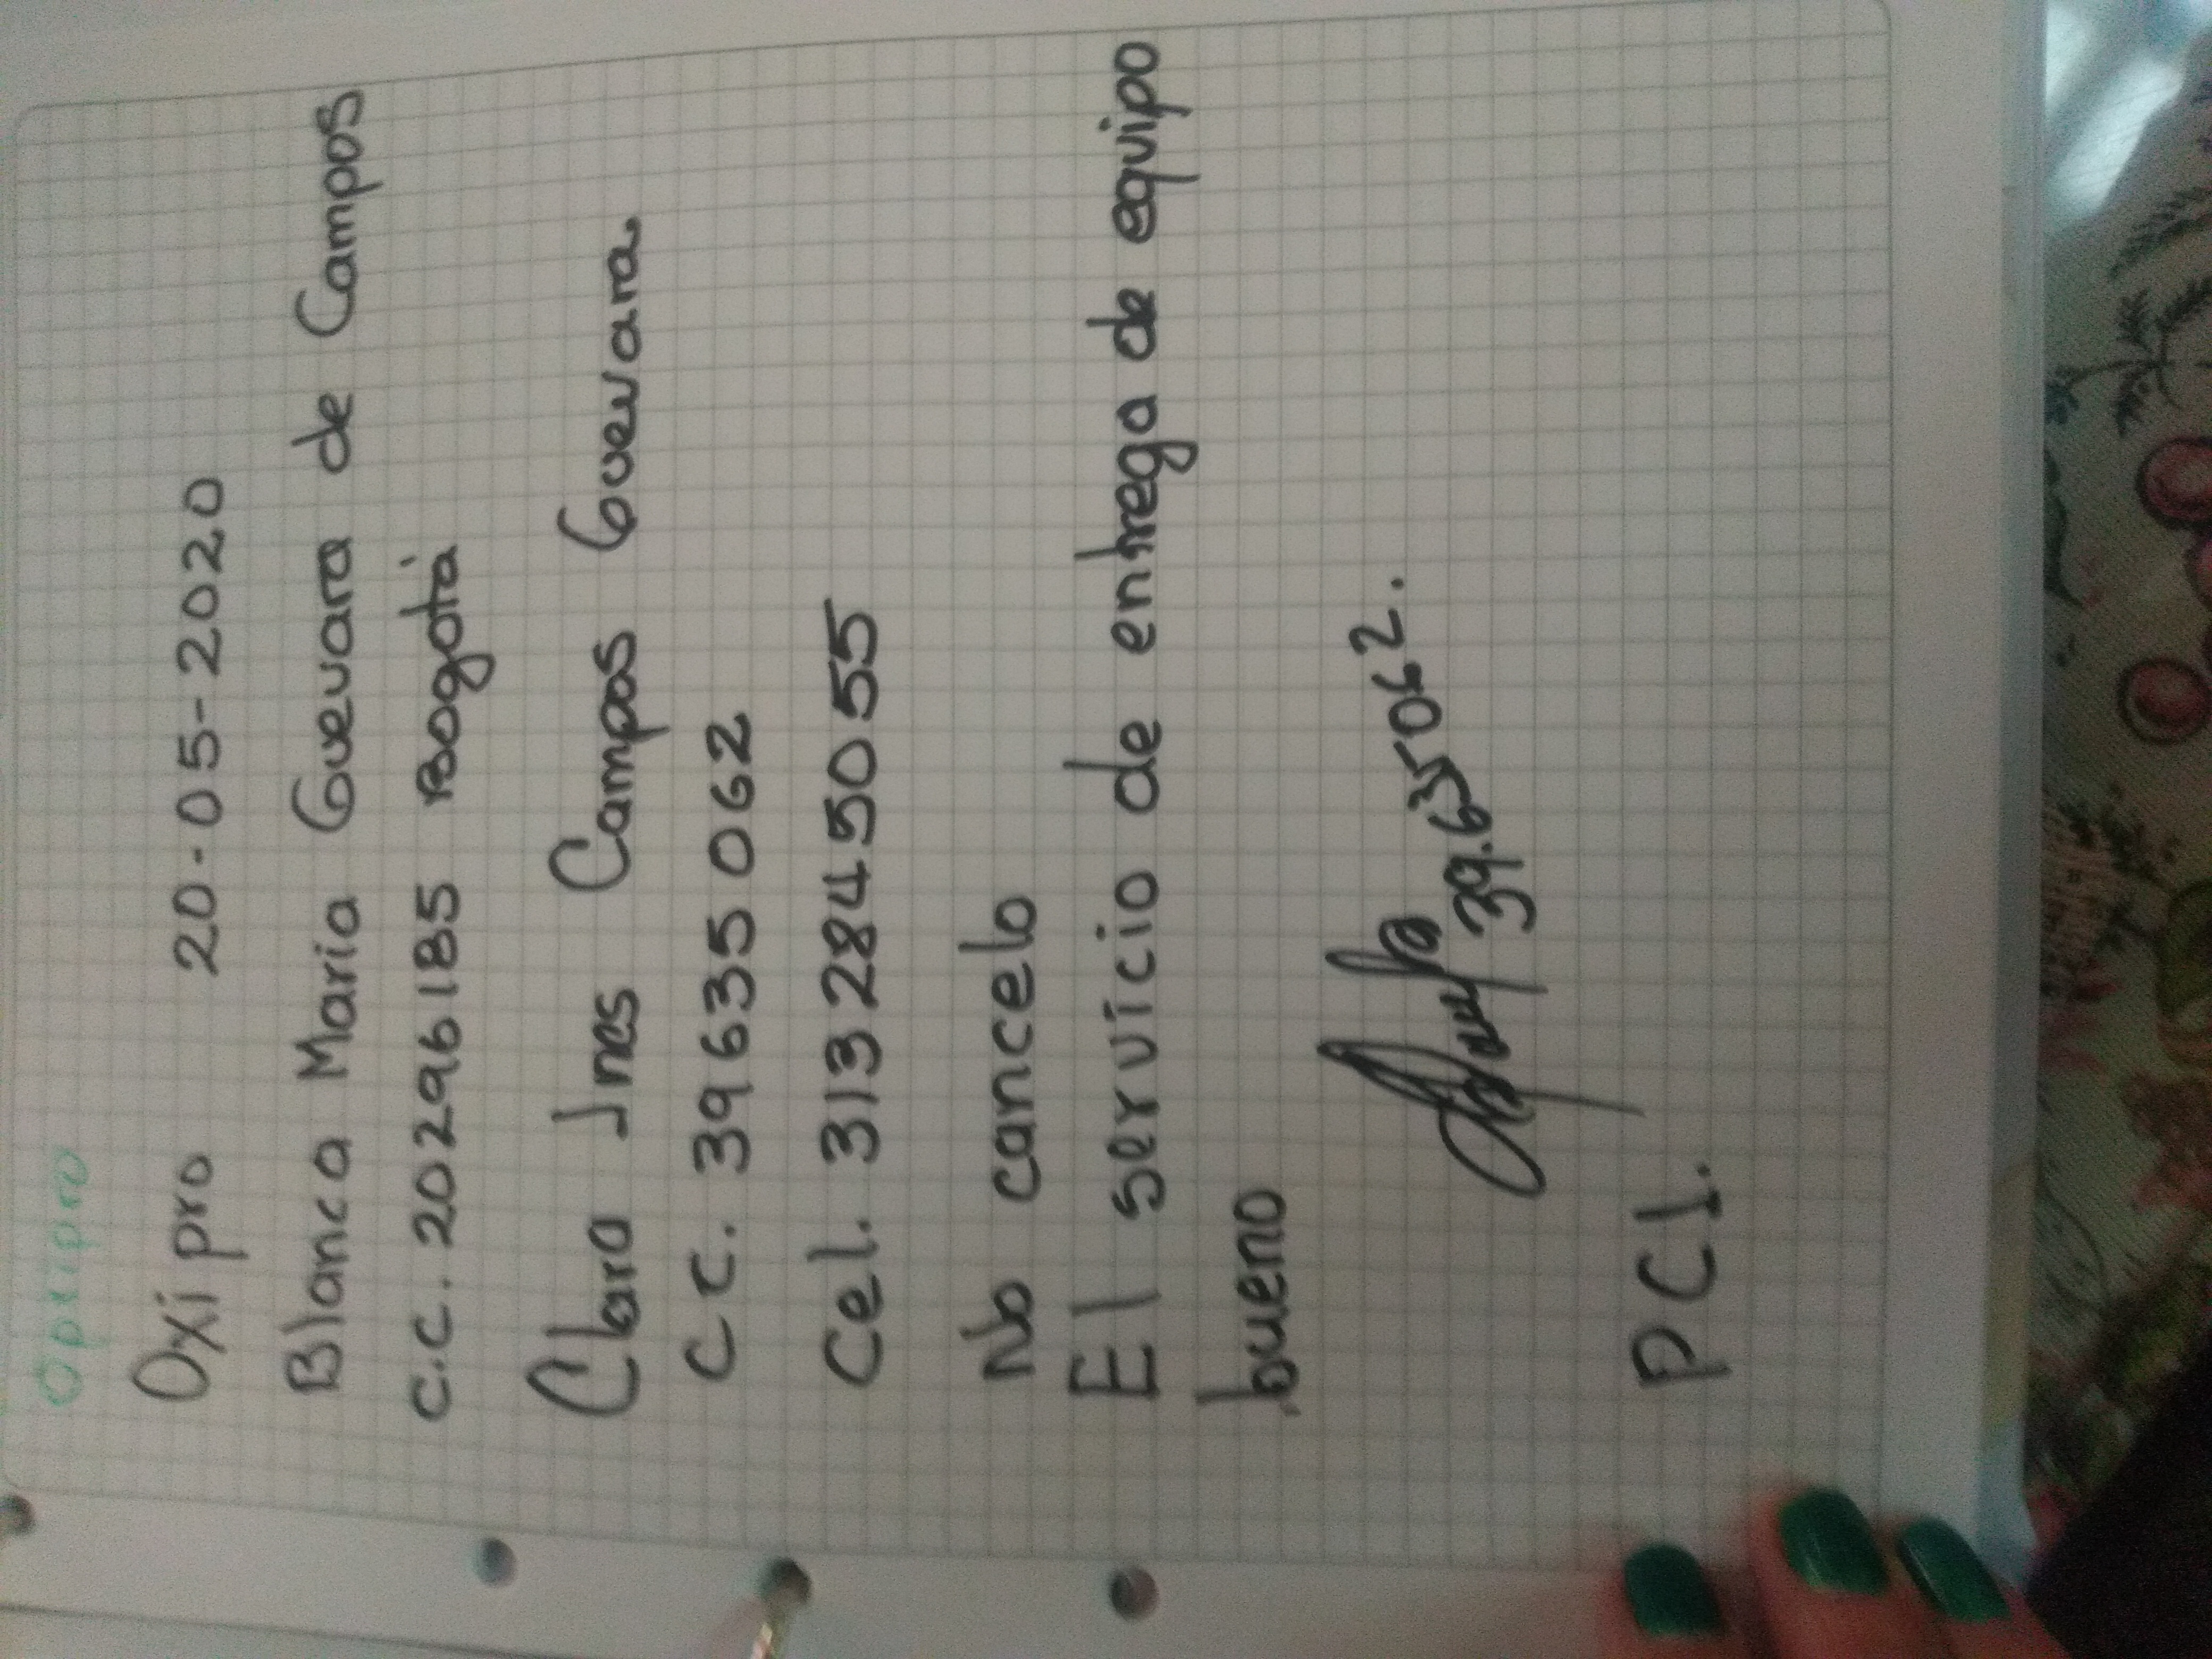 Oxipro
Oxipro 20-05-2020
Blanca Maria Guevara de Campos
C.C. 20296185 Bogotá
Clara Ines Campos Guevara.
C C. 39635062
Cel. 3132845055
No cancelo
El servicio de entrega de equipo
bueno
39.635062.
P C I.